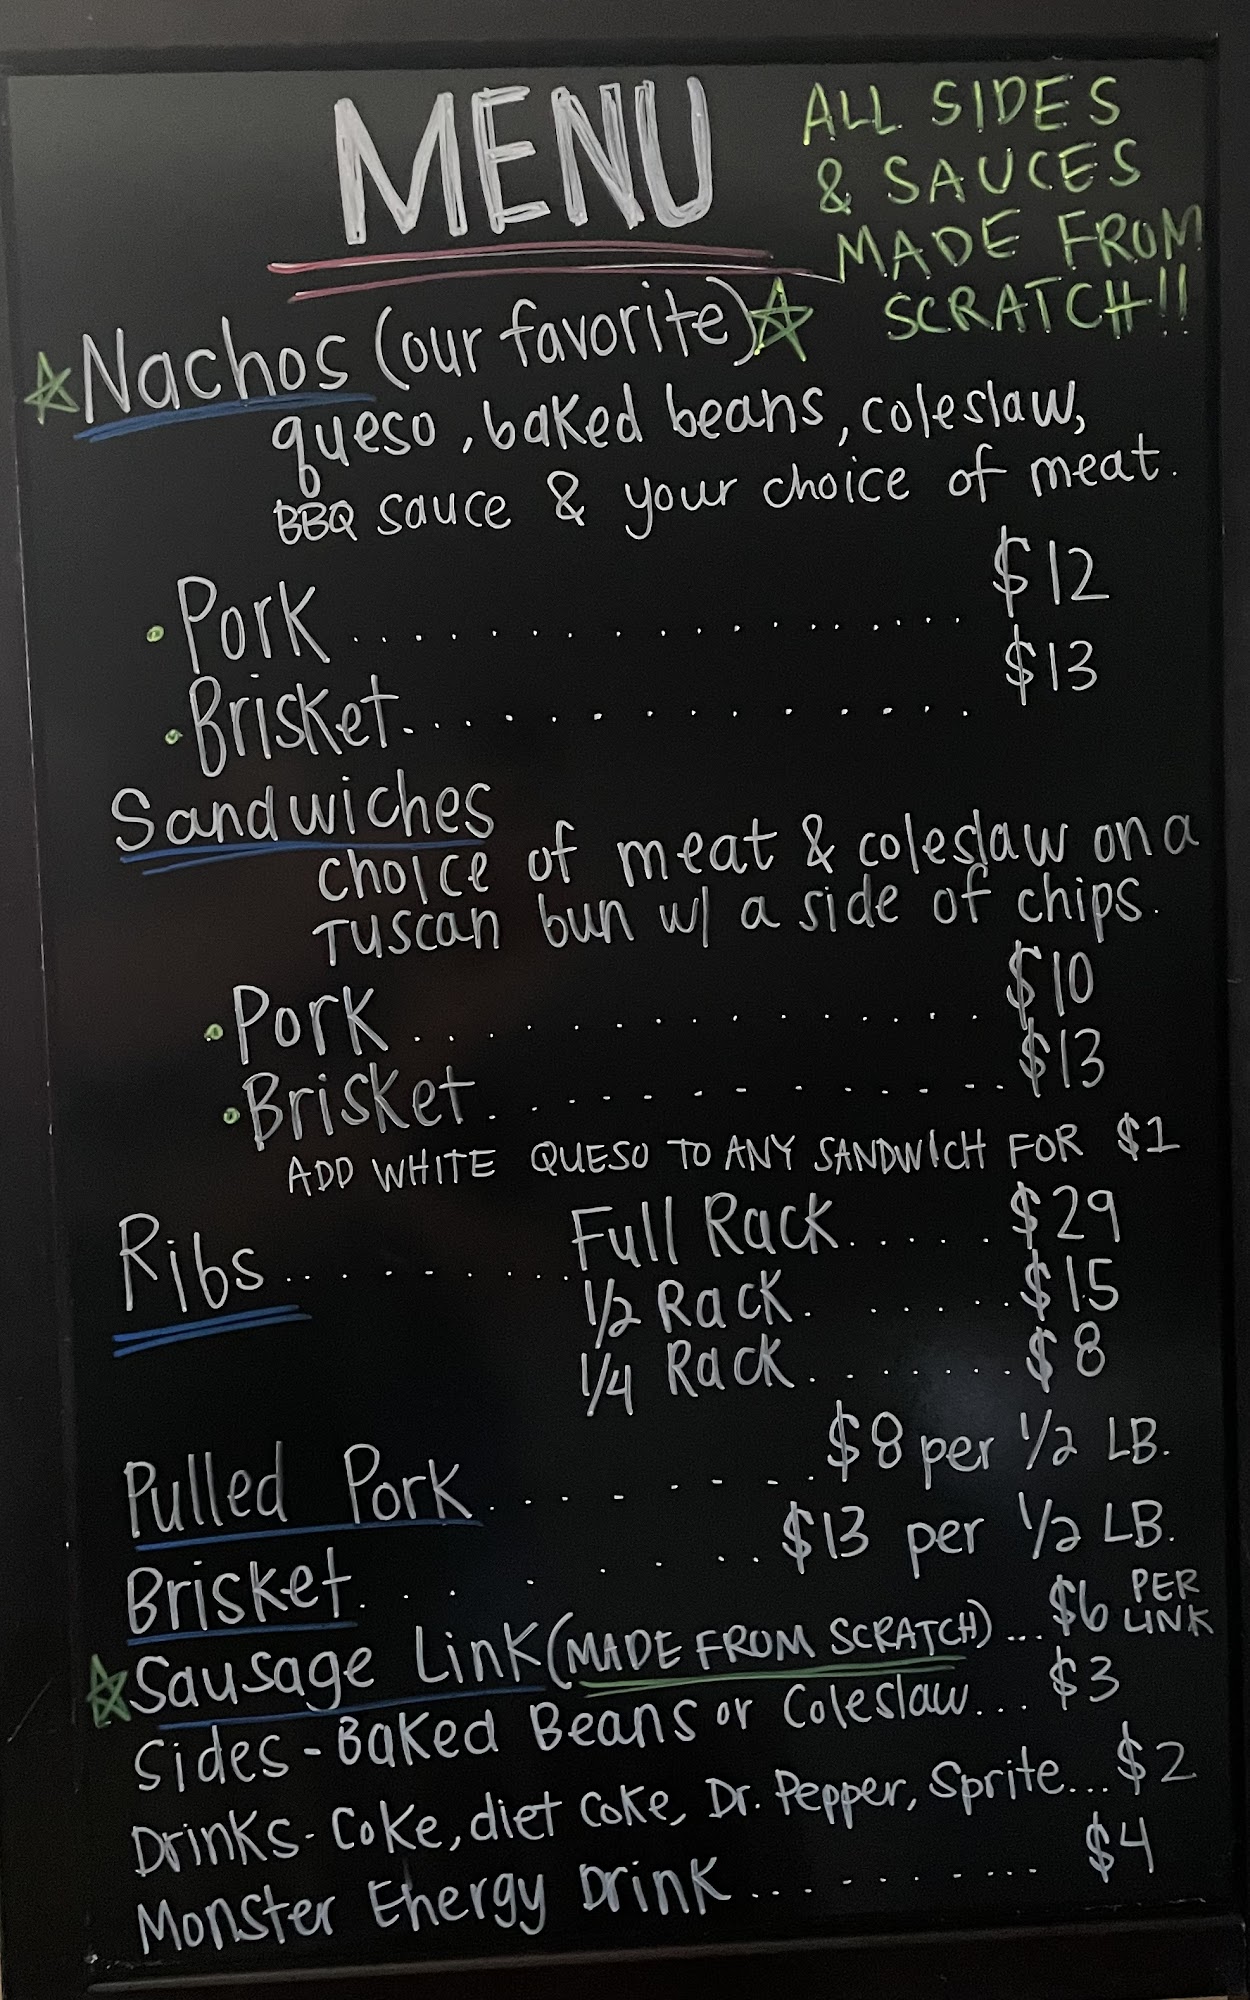 MENU
ALL SIDES
& SAUCES
MADE FROM
SCRATCH!!
Nachos (our favorite)
queso, baked beans, coleslaw,
BBQ sauce & your choice of meat.
Pork.................... $12
Brisket................. $13
Sandwiches
choice of meat & coleslaw on a
Tuscan bun w/ a side of chips.
Pork................ $10
Brisket............. $13
ADD WHITE QUESO TO ANY SANDWICH FOR $1
Ribs......... Full Rack..... $29
1/2 Rack....... $15
1/4 Rack....... $8
Pulled Pork......... $8 per 1/2 LB.
Brisket......... $13 per 1/2 LB.
Sausage Link (MADE FROM SCRATCH)... $6 PER LINK
Sides - Baked Beans or Coleslaw... $3
Drinks - Coke, diet Coke, Dr. Pepper, Sprite... $2
Monster Energy Drink........... $4